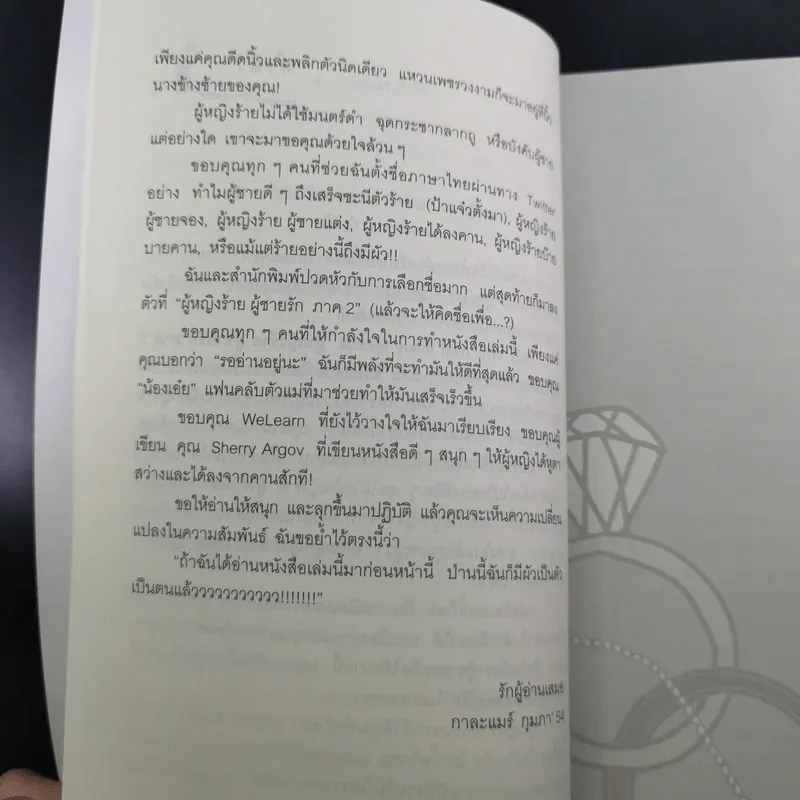 เพียงแค่คุณดีดนิ้วและพลิกตัวนิดเดียว แหวนเพชรวงงามก็จะมาอยู่ที่นิ้ว
นางข้างซ้ายของคุณ!
ผู้หญิงร้ายไม่ได้ใช้มนตร์ดำ ฉุดกระชากลากถู หรือบังคับผู้ชาย
แต่อย่างใด เขาจะมาขอคุณด้วยใจล้วน ๆ
ขอบคุณทุก ๆ คนที่ช่วยฉันตั้งชื่อภาษาไทยผ่านทาง Twitter
อย่าง ทำไมผู้ชายดี ๆ ถึงเสร็จชะนีตัวร้าย (ป้าแจ๋วตั้งมา), ผู้หญิงร้าย
ผู้ชายจอง, ผู้หญิงร้าย ผู้ชายแต่ง, ผู้หญิงร้ายได้ลงคาน, ผู้หญิงร้ายบ๊าย
บายคาน, หรือแม้แต่ร้ายอย่างนี้ถึงมีผัว!!
ฉันและสำนักพิมพ์ปวดหัวกับการเลือกชื่อมาก แต่สุดท้ายก็มาลง
ตัวที่ “ผู้หญิงร้าย ผู้ชายรัก ภาค 2” (แล้วจะให้คิดชื่อเพื่อ...?)
ขอบคุณทุก ๆ คนที่ให้กำลังใจในการทำหนังสือเล่มนี้ เพียงแค่
คุณบอกว่า “รออ่านอยู่นะ” ฉันก็มีพลังที่จะทำมันให้ดีที่สุดแล้ว ขอบคุณ
“น้องเอ๋ย” แฟนคลับตัวแม่ที่มาช่วยทำให้มันเสร็จเร็วขึ้น
ขอบคุณ WeLearn ที่ยังไว้วางใจให้ฉันมาเรียบเรียง ขอบคุณผู้
เขียน คุณ Sherry Argov ที่เขียนหนังสือดี ๆ สนุก ๆ ให้ผู้หญิงได้หูตา
สว่างและได้ลงจากคานสักที!
ขอให้อ่านให้สนุก และลุกขึ้นมาปฏิบัติ แล้วคุณจะเห็นความเปลี่ยน
แปลงในความสัมพันธ์ ฉันขอย้ำไว้ตรงนี้ว่า
“ถ้าฉันได้อ่านหนังสือเล่มนี้มาก่อนหน้านี้ ป่านนี้ฉันก็มีผัวเป็นตัว
เป็นตนแล้วววววววววววว!!!!!!!”
รักผู้อ่านเสมอ
กาละแมร์ กุมภา’ 54